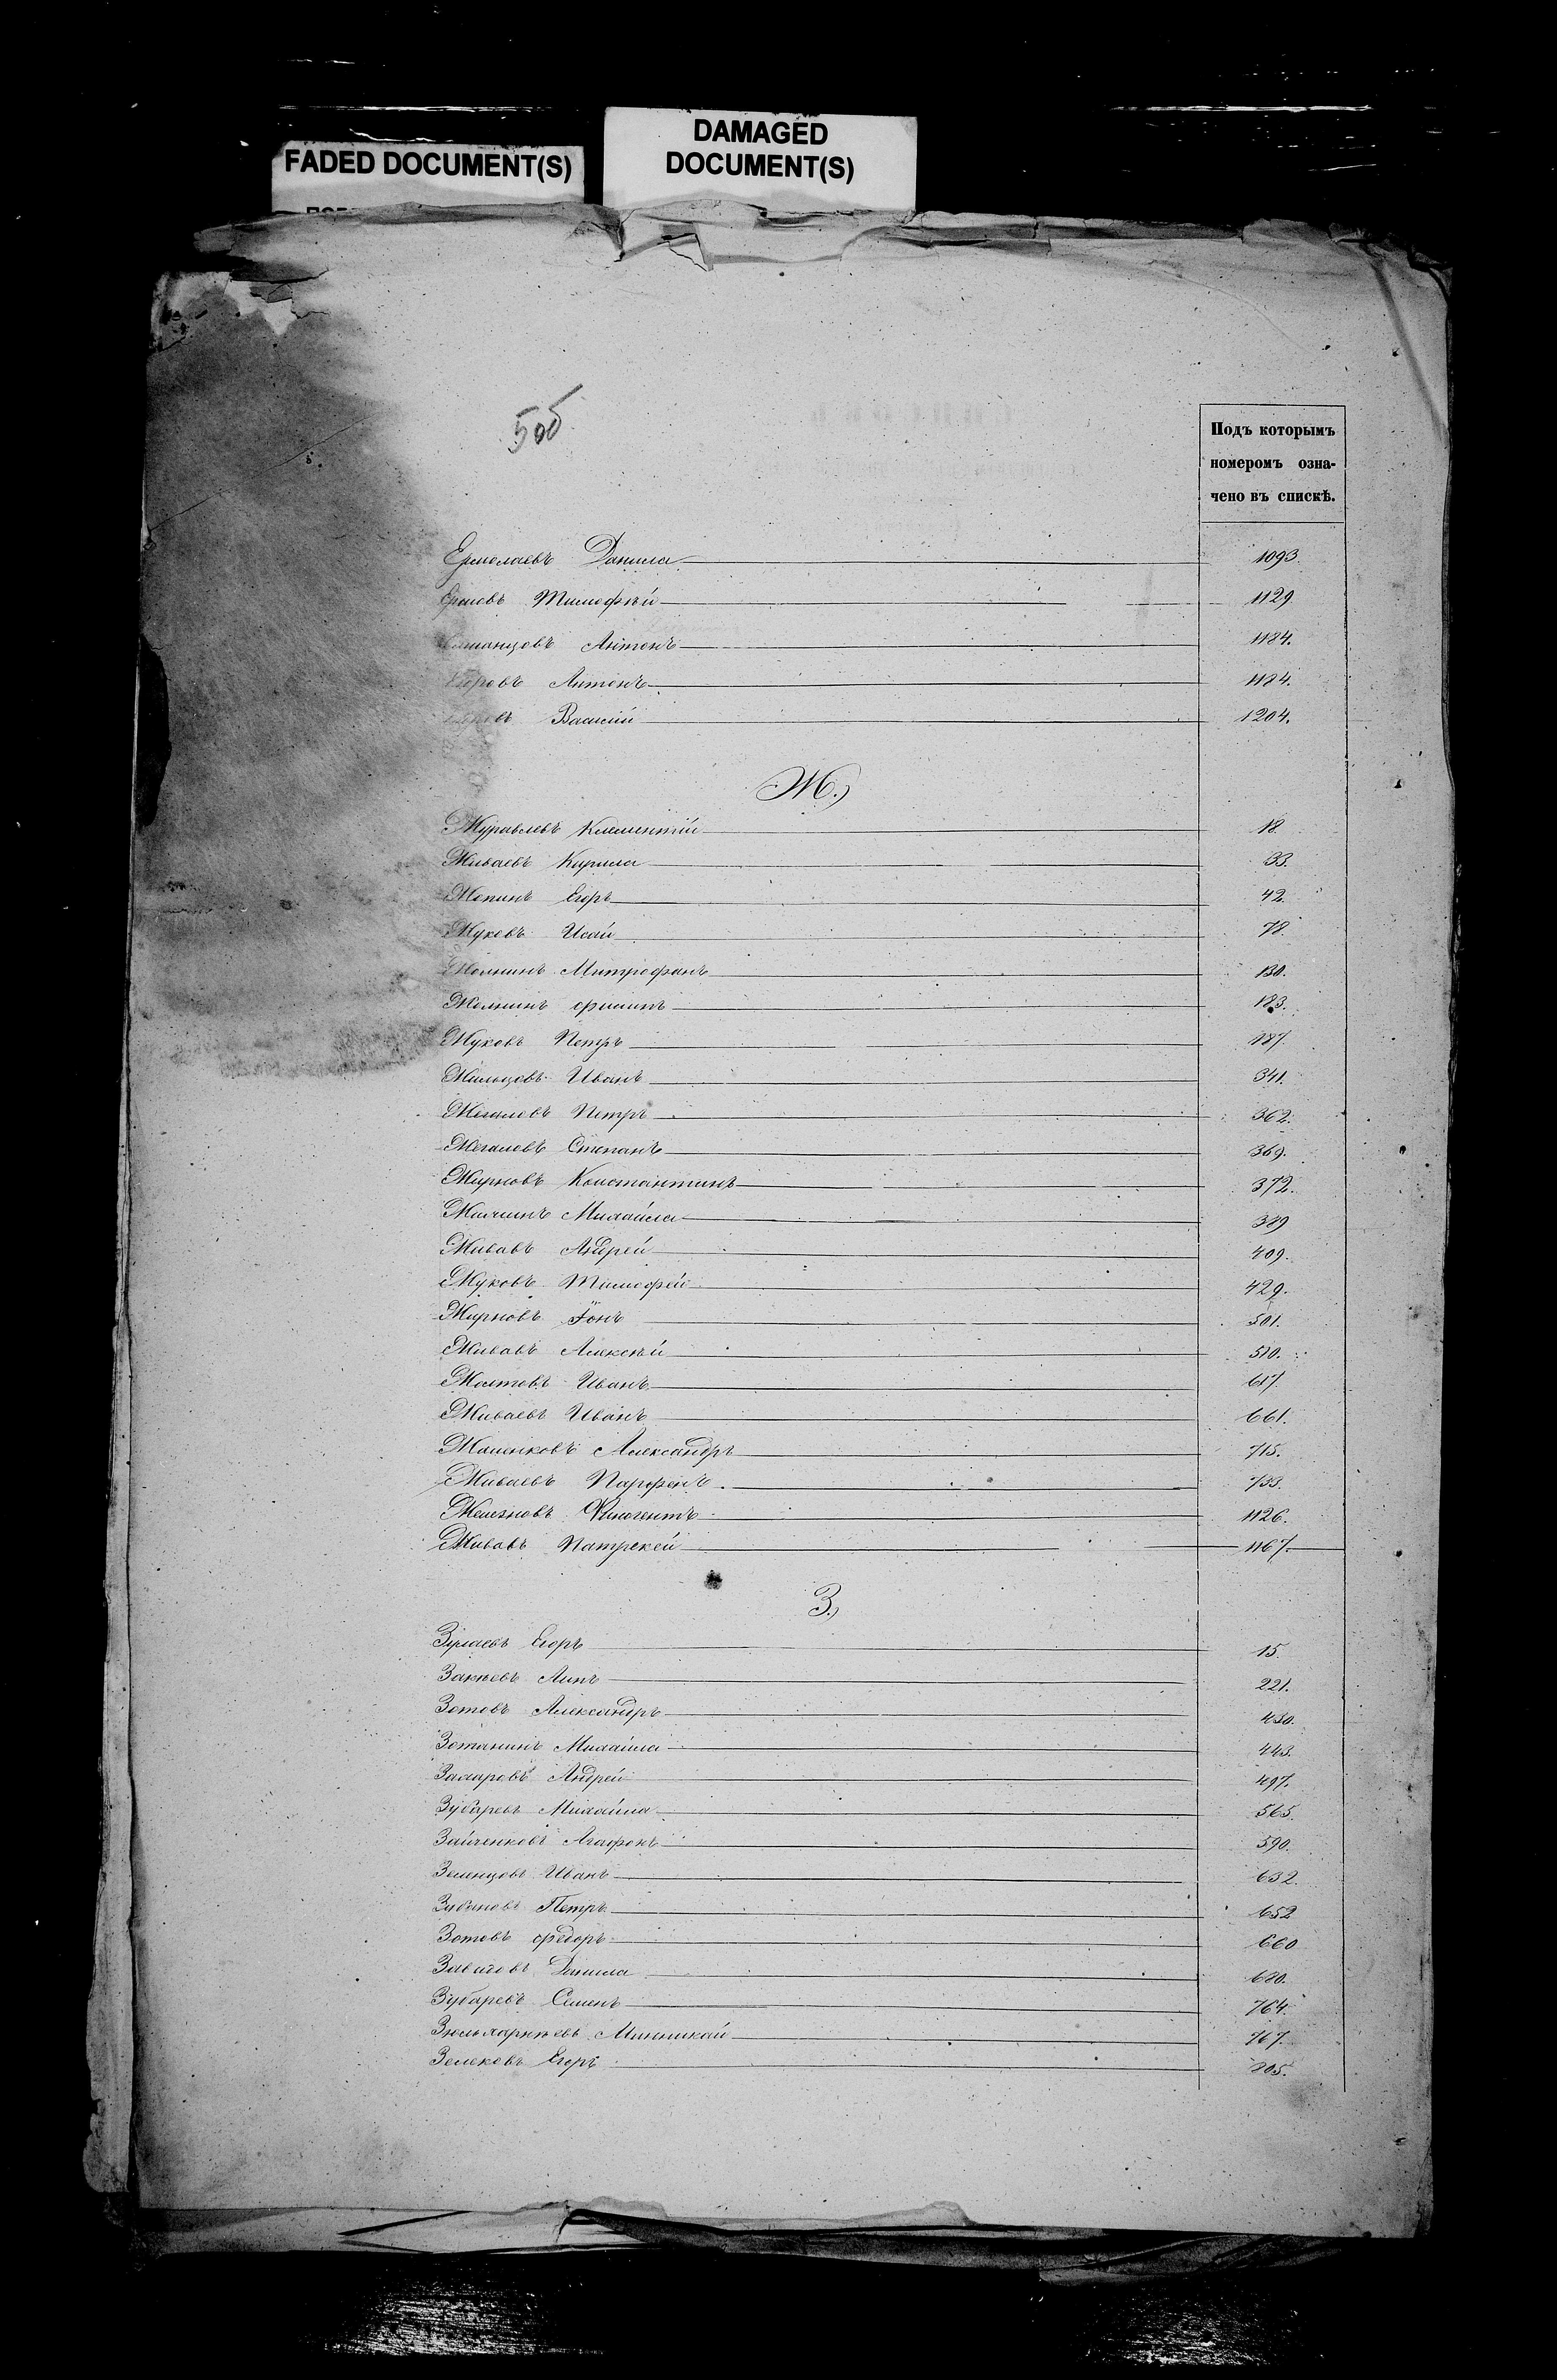 FADED DOCUMENT(S)
DAMAGED
DOCUMENT(S)
5об
Подъ которымъ
номеромъ озна-
чено въ спискѣ.
Ермолаевъ Данила 1093.
Ершовъ Тимофѣй 1129
Антонъ 1184.
Егоровъ Антонъ 1184.
Василій 1204.
Ж.)
Журавлевъ Климентій 18
Живаевъ Кирила 33.
Жопинъ Егоръ 42.
Жуковъ Исай 78.
Жолнинъ Митрофанъ 130.
Жолнинъ Филипъ 183.
Жуковъ Петръ 187.
Жильцовъ Иванъ 341.
Жегаловъ Петръ 362.
Жегаловъ Степанъ 369.
Жирновъ Константинъ 372.
Михайла 389
Живавъ Андрей 409.
Жуковъ Тимофей 429.
Жирновъ Іонъ 501.
Живавъ Алексѣй 510.
Желтовъ Иванъ 617.
Живаевъ Иванъ 661.
Александръ 715.
Живаевъ Парфенъ 733.
Железновъ Финогентъ 1126.
Живавъ Патрекей 1167.
З.)
Егоръ 15.
221.
Зотовъ Александръ 430.
Михайла 443.
Захаровъ Андрей 497.
Зубаревъ Михайла 565.
Зайченковъ Агафонъ 590.
Зеленцовъ Иванъ 632.
Петръ 652
Зотовъ Федоръ 660
Данила 680.
Зубаревъ Семенъ 764.
767.
Егоръ 805.